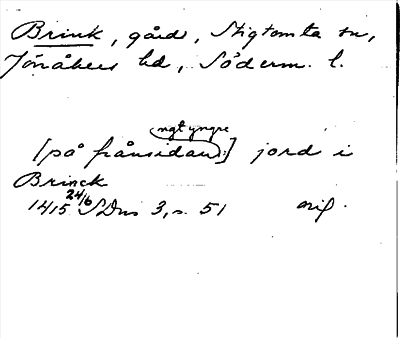 Brink, gård, Stigtomta sn,
Jönåkers hd, Söderm. l.
ngt yngre
[på frånsidan:] jord i
Brinck
1415 24/6 SDns 3, s. 51 orig.